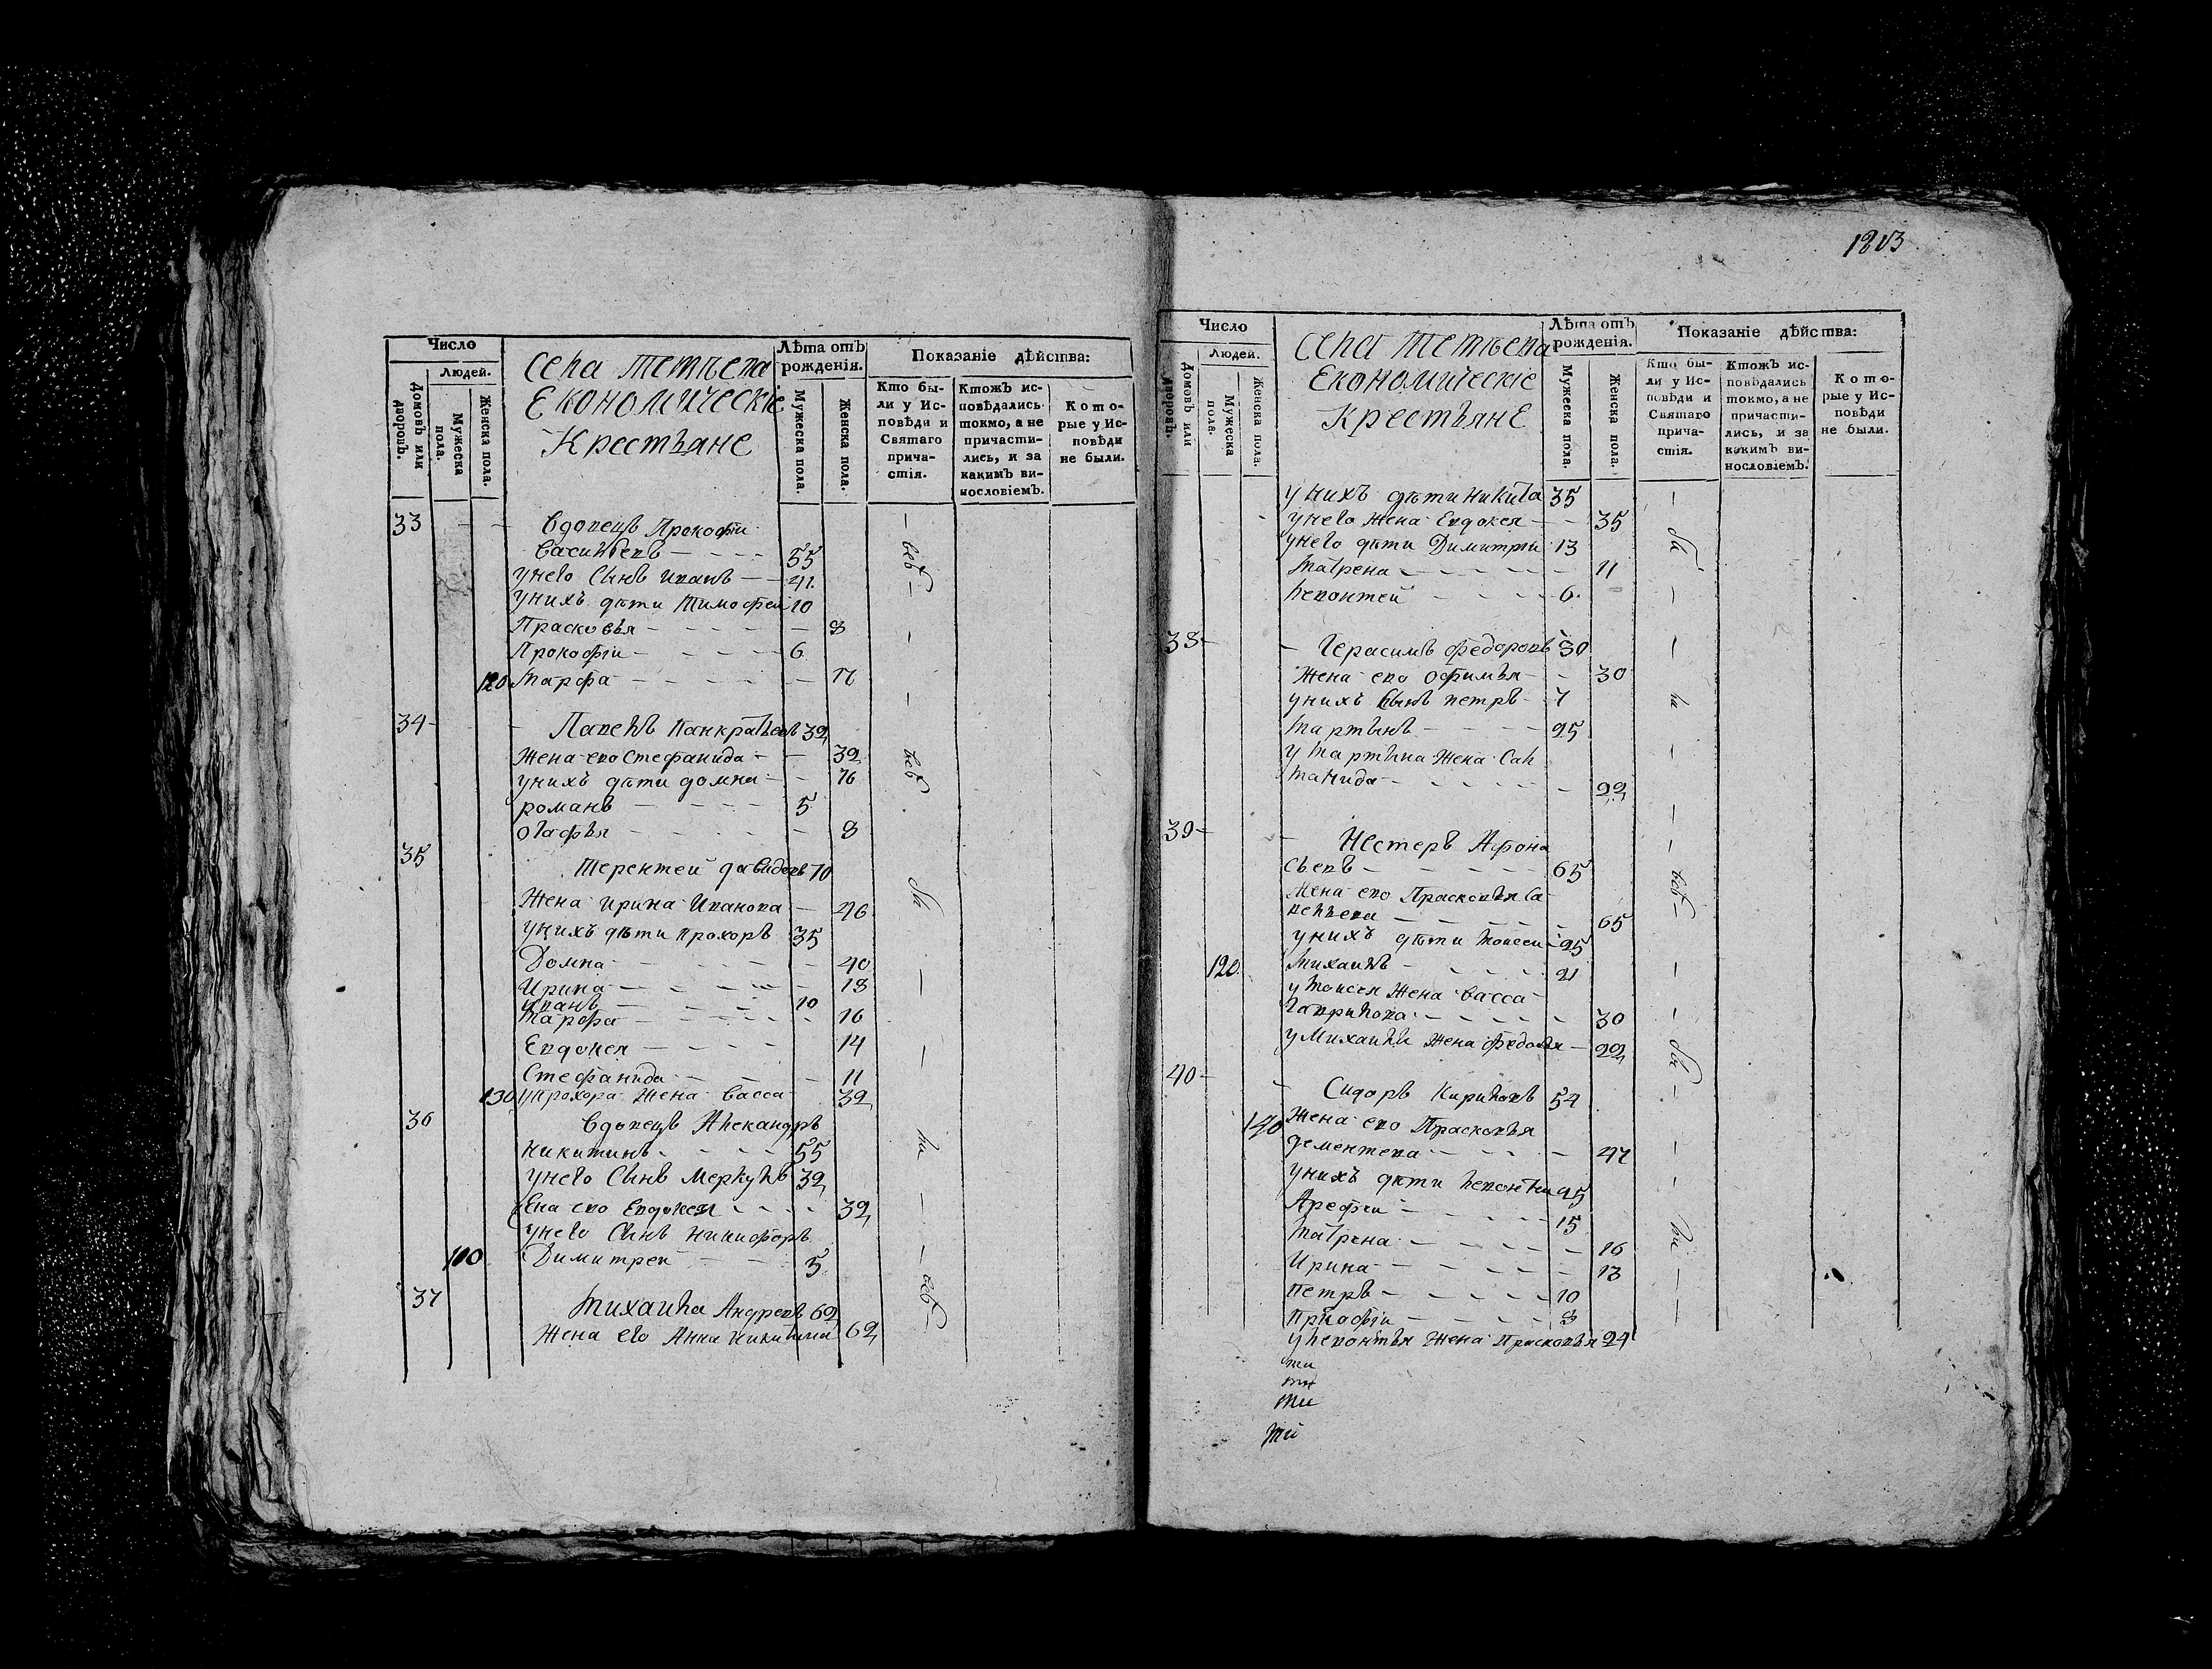 Число
Людей.
Домовъ или дворовъ.
Мужеска пола.
Женска пола.
Села Тетѣева
Економическiе
Крестьяне
Лѣта отъ рожденiя.
Мужеска пола.
Женска пола.
Показанiе дѣйства:
Кто были у Исповѣди и Святаго причастiя.
Ктожъ исповѣдались токмо, а не причастились, и за какимъ винословiемъ.
Которые у Исповѣди не были.
33 Вдовецъ Прокофiи
Васильевъ 55
у него Сынъ Иванъ 41
у нихъ дѣти Тимофеи 10
Прасковья 8
Прокофiи 6
120 Марфа
34 Павелъ Панкратьевъ 32
Жена ево Стефанида 32
у нихъ дѣти домна 16
романъ 5
огафья 8
35 Терентей давидовъ 70
Жена Ирина Иванова 46
у нихъ дѣти прохоръ 35
Домна 40
Ирина 18
Иванъ 10
Марфа 16
Евдокея 14
Стефанида 11
130 у прохора Жена Васса 32
36 Вдовецъ Александръ
никитинъ 55
у него Сынъ Меркулъ 32
Жена ево Евдокея 32
у него Сынъ никифоръ
110 Димитреи 5
37 Михаила Андревъ 62
Жена его Анна никитина 62
1803
Число
Людей.
Домовъ или дворовъ.
Мужеска пола.
Женска пола.
Села Тетѣева
Економическiе
Крестьяне
Лѣта отъ рожденiя.
Мужеска пола.
Женска пола.
Показанiе дѣйства:
Кто были у Исповѣди и Святаго причастiя.
Ктожъ исповѣдались токмо, а не причастились, и за какимъ винословiемъ.
Которые у Исповѣди не были.
у нихъ дѣти никита 35
у него Жена Евдокея 35
у него дѣти Димитрiи 13
Матрена 11
левонтей 6
38 Герасимъ федоровъ 30
Жена ево офимья 30
у нихъ Сынъ петръ 7
Мартынъ 25
у Мартына Жена Сал
манида 22
39 Нестеръ Афона
сьевъ 65
Жена ево Прасковья Са
вельева 65
у нихъ дѣти Моисеи 25
120 Михаилъ 21
у Моисея Жена Васса
Гаврилова 30
у Михаилы Жена федосья 22
40 Сидоръ Кириловъ 54
140 Жена ево Прасковья
дементева 47
у нихъ дѣти левонтеи 25
Арефiи 15
Матрена 16
Ирина 13
петръ 10
у левонтья Жена Прасковья 24
ти
ти
ти
ти